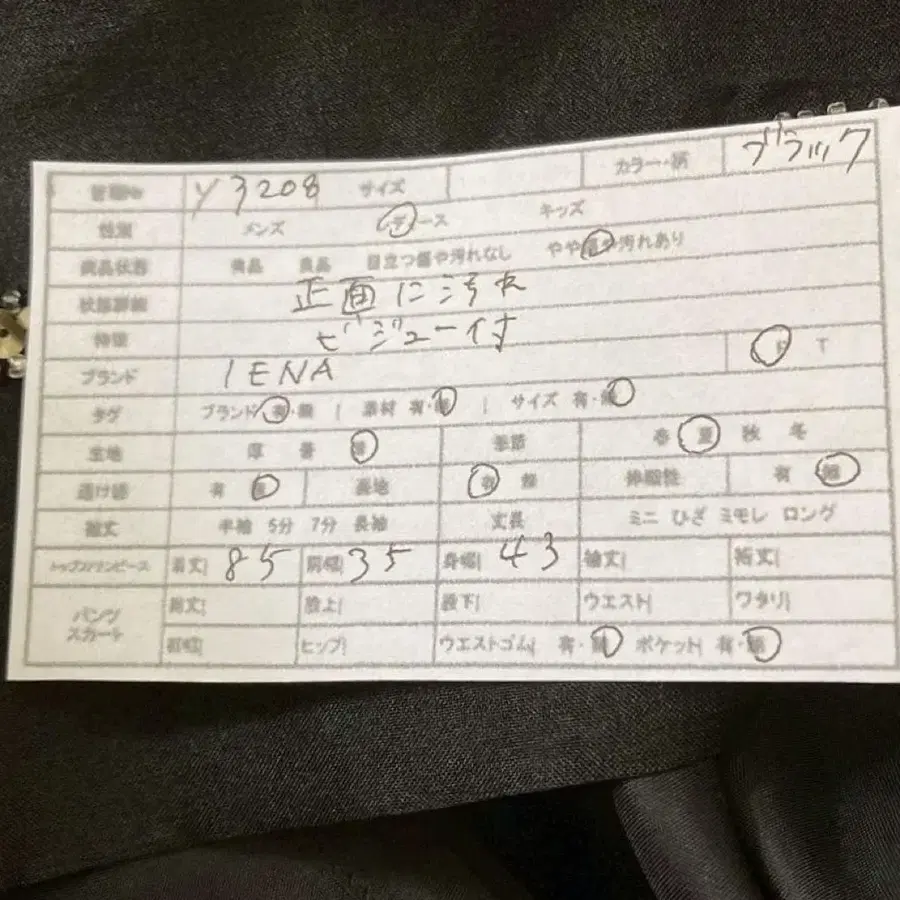 管理No Y3208 サイズ カラー・柄 ブラック
性別 メンズ レディース キッズ
商品状態 美品 良品 目立つ傷や汚れなし やや傷や汚れあり
状態詳細 正面に汚れ
特徴 ビジュー付
ブランド IENA T
タグ ブランド 有・無 | 素材 有・無 | サイズ 有・無
生地 厚 普 薄 季節 春 夏 秋 冬
透け感 有 無 裏地 有 無 伸縮性 有 無
袖丈 半袖 5分 7分 長袖 丈長 ミニ ひざ ミモレ ロング
トップス/ワンピース 着丈| 85 肩幅| 35 身幅| 43 袖丈| 裄丈|
パンツ スカート 総丈| 股上| 股下| ウエスト| ワタリ|
裾幅| ヒップ| ウエストゴム| 有・無 ポケット| 有・無